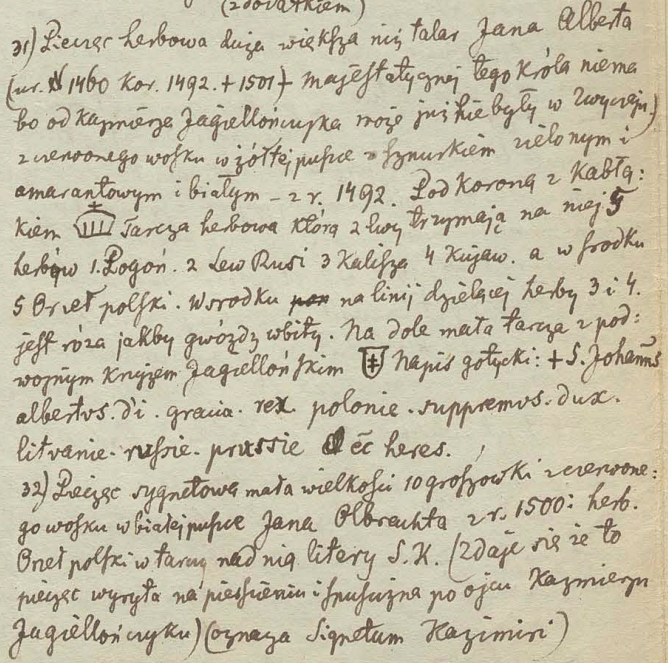 (z dodatkiem)
31) Pieczęć herbowa duża większa niż talar Jana Alberta
(ur. 1460 kor. 1492. + 1501) majestatycznej tego króla niema
bo od Kazmierza Jagiellończyka może już nie były w zwyczaju)
z czerwonego wosku w żółtej puszce z sznurkiem zielonym i
amarantowym i białym – z r. 1492. Pod koroną z Kabłą:
kiem Tarcza herbowa którą 2 lwy trzymają na niej 5
herbów 1. Pogoń. 2 Lew Rusi 3 Kalisza 4 Kujaw. a w środku
5 Orzeł polski. Wsrodku na linij dzielącej herby 3 i 4.
jest róża jakby gwóźdź wbity. Na dole mała tarcza z pod:
wojnym krzyżem Jagiellońskim Napis gotycki: + S. Johanns
albertvs. d'i. gracia. rex polonie. suppremvs. dux.
litvanie. russie. prussie ec heres.
32) Pieczęć sygnetowa mała wielkości 10 groszowki z czerwone:
go wosku w białej puszce Jana Olbrachta z r. 1500: herb.
Orzeł polski w tarczy nad nią litery S. K. (Zdaje się że to
pieczęć wyryta na pierścieniu i spuścizna po ojcu Kazmierzu
Jagiellończyku) (oznacza Signetum Kazimiri)